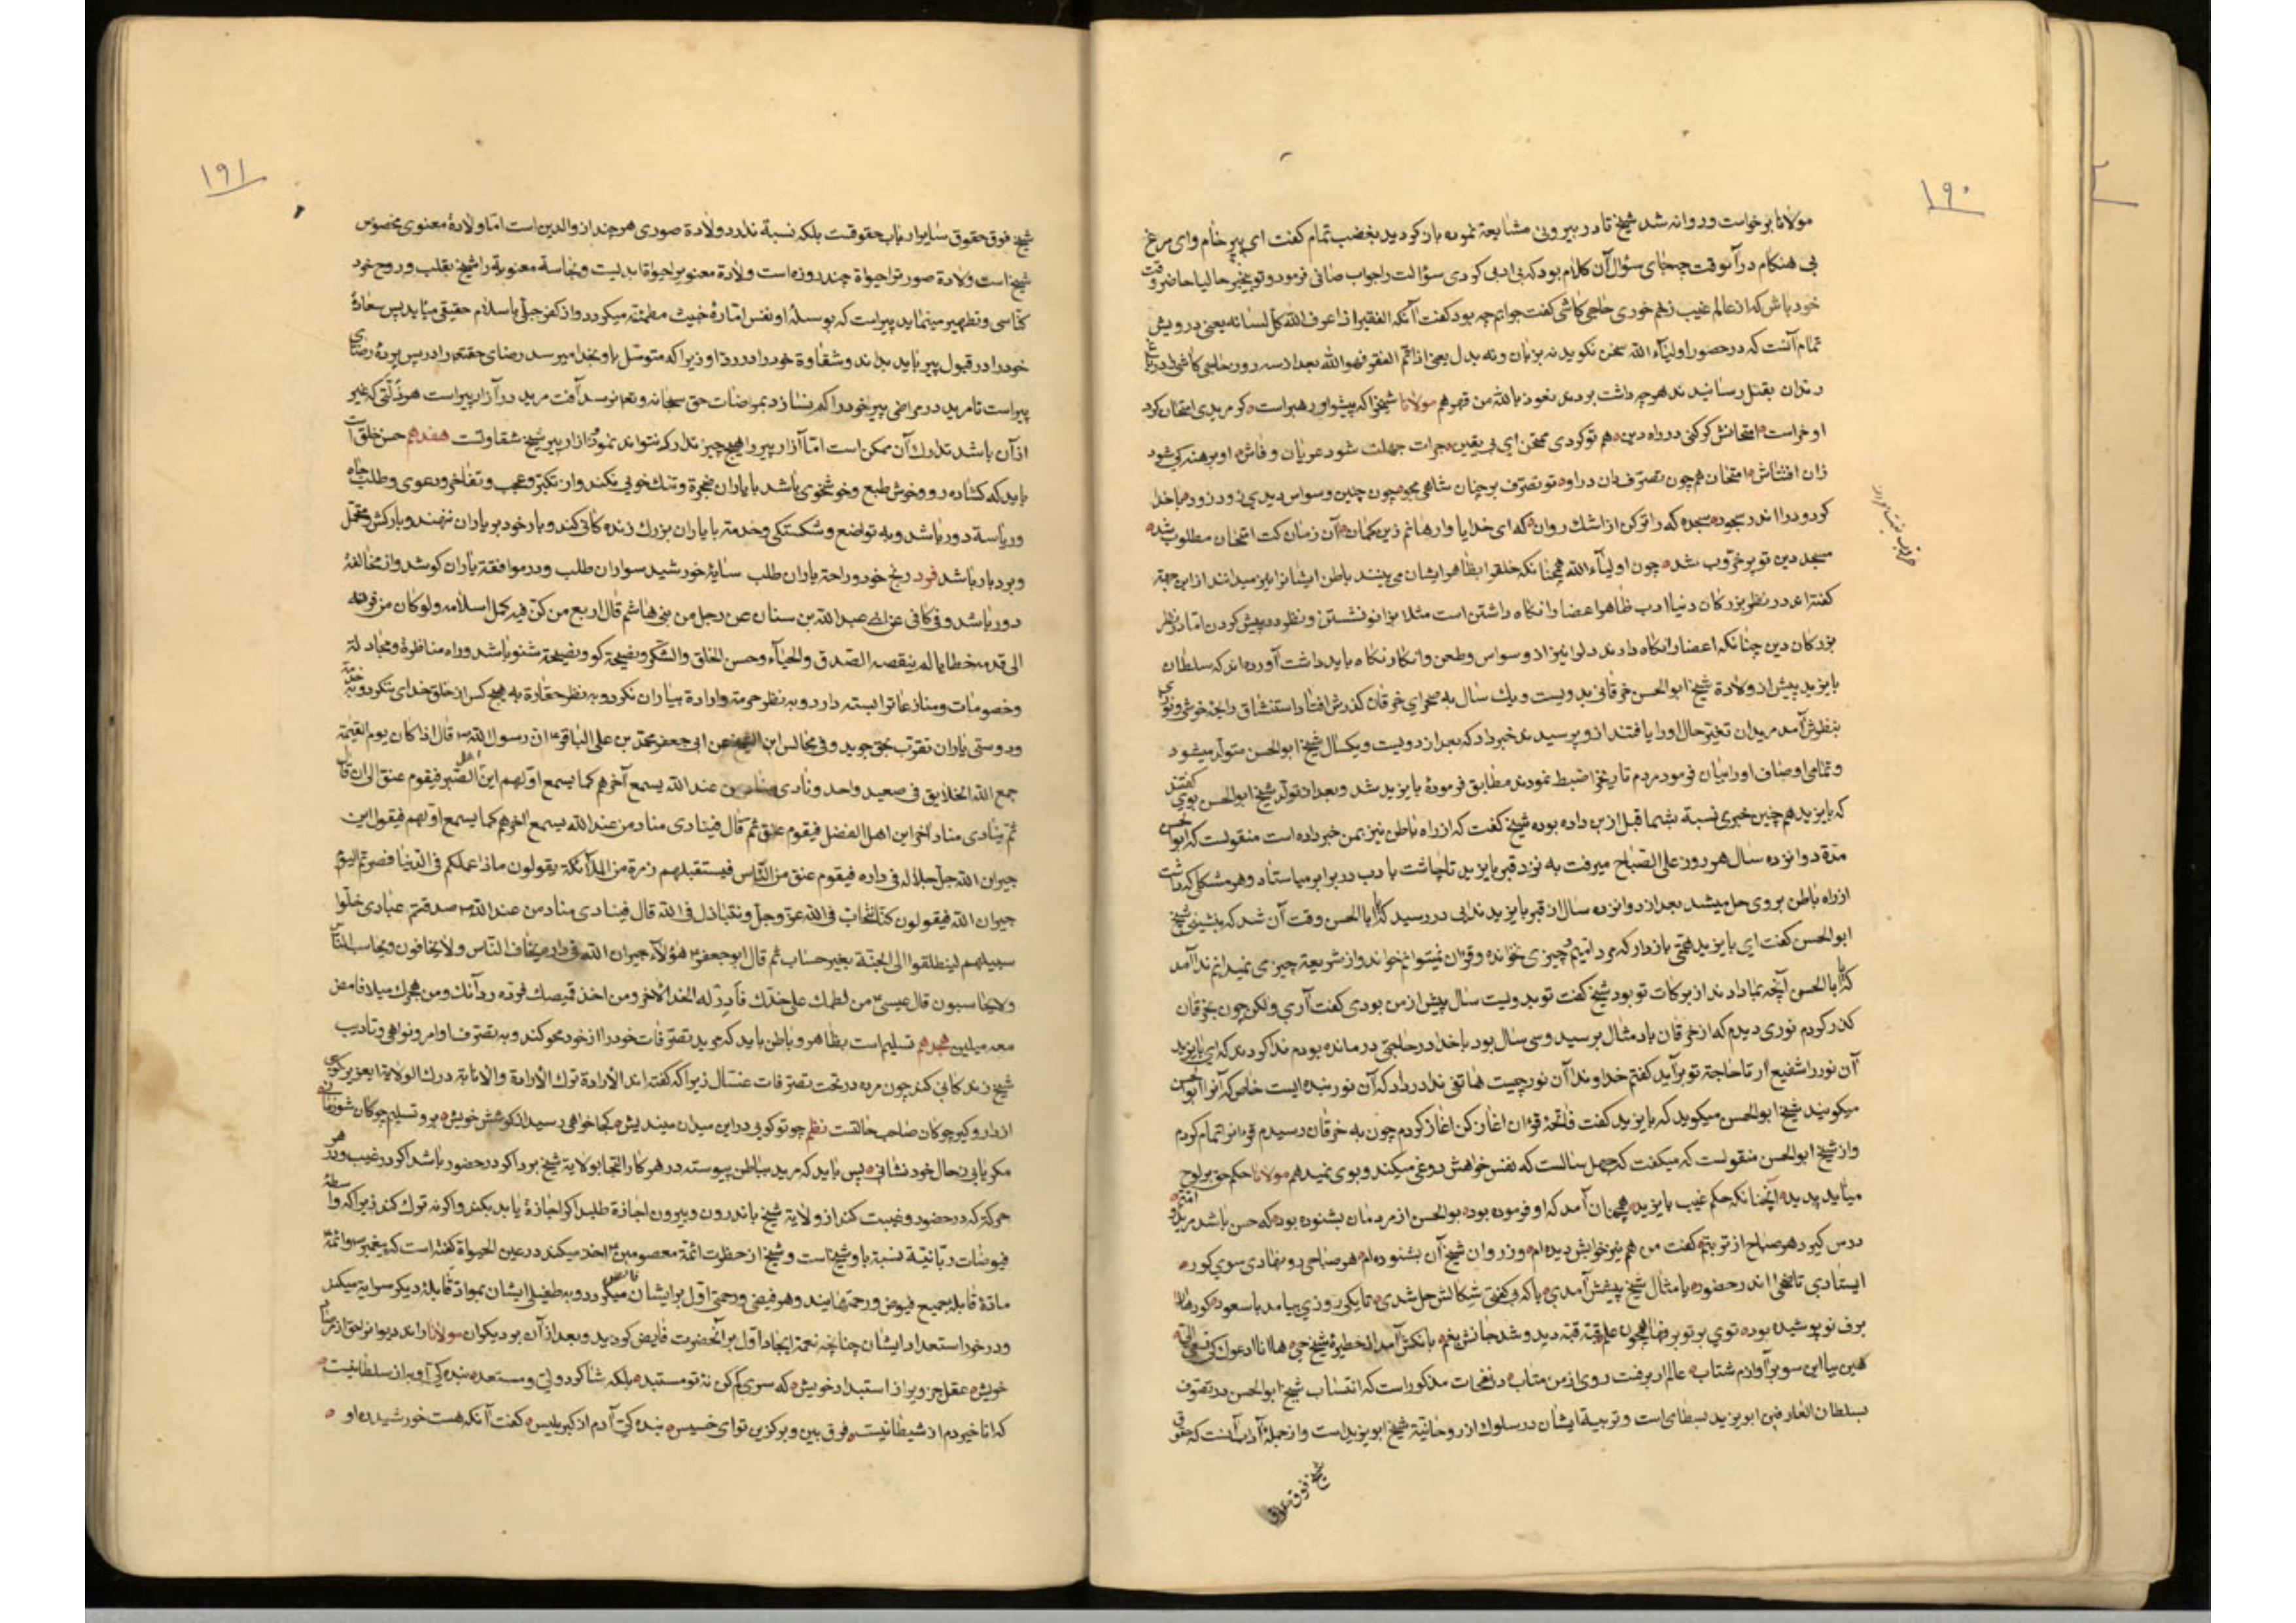 ۱۹۰
مولانا برخواست و روانه شد شیخ تا در بیرونی مشایعة نموده باز کردید بغضب تمام کفت ای پیر خام وای مرغ
بی هنکام در آنوقت چه جای سؤال آن کلام بود که بی ادبی کردی سؤالت را جواب صافی فرمود و تو بیخبر حالیا حاضر وقت
خود باش که از عالم غیب زخم خوری حاجی کاشی کفت جوابم چه بود کفت آنکه الفقیر اذا عرف الله کلّ لسانه یعنی درویش
تمام آنست که در حضور اولیآء الله سخن نکوید نه بزبان ونه بدل یعنی اذا تمّ الفقر فهوالله بعد از سه روز حاجی کاشی را در باغ
رندان بقتل رسانیدند هرچه داشت بردند نعوذ بالله من قهرهم مولانا شیخرا که پیشوا و رهبر است کر مریدی امتحان کرد
او خر است امتحانش کر کنی در راه دین هم تو کردی ممتحن ای بی یقین جرات جهلت شود عریان و فاش او برهنه کی شود
زان افتتاش امتحان همچون تصرّف دان در او تو تصرّف بر چنان شاهی مجو چون چنین وسواس دیدی زود زود با خدا
کرد و درا اندر سجود سجده که را تر کن از اشک روان که ای خدایا وارهانم زین کمان آن زمان کت امتحان مطلوب شد
مسجد دین تو پر خرّوب شد چون اولیآء الله همچنانکه خلق را بظاهر ایشان می بینند باطن ایشانرا نیز میدانند از این جهة
کفته اند در نظر بزرکان دنیا ادب ظاهر اعضا را نکاه داشتن است مثلا بزانو نشستن ونظر در پیش کردن امّا در نظر
بزرکان دین چنانکه اعضا را نکاه دارند دلرا نیز از وسواس وطعن وانکار نکاه باید داشت آورده اند که سلطان
بایزید پیش از ولادة شیخ ابوالحسن خرقانی بدویست و یک سال به صحرای خرقان کذرش افتاد استنشاق رایحۀ خوشی ونوری
بنظرش آمد مریدان تغیّر حال اورا یافتند ازو پرسیدند خبر داد که بعد از دویست و یکسال شیخ ابوالحسن متولّد میشود
وتمامی اوصاف اورا بیان فرمود مردم تاریخ را ضبط نمودند مطابق فرمودۀ بایزید شد وبعد از تولّد شیخ ابوالحسن بوی کفتند
که بایزید هم چنین خبری نسبة بشما قبل ازین داده بوده شیخ کفت که از راه باطن نیز بمن خبر داده است منقولست که ابوالحسن
مدّة دوانزده سال هر روز علی الصّباح میرفت به نزد قبر بایزید تا چاشت با دب در برابر میاستاد وهر مشکلی که داشت
از راه باطن بروی حل میشد بعد از دوانزده سال از قبر بایزید ندایی در رسید که یا اباالحسن وقت آن شد که بنشینی شیخ
ابوالحسن کفت ای بایزید همّتی بازدار که مرد امّیم و چیزی نخوانده و قرآن نمیتوانم خواند و از شریعة چیزی نمیدانم ندا آمد
که یا اباالحسن آنچه بما دادند از برکات تو بود شیخ کفت تو بدویست سال پیش از من بودی کفت آری ولکن چون بخرقان
کذر کردم نوری دیدم که از خرقان باد مثال بر سید وسی سال بود با خدا در حاجتی در مانده بودم ندا کردند که ای بایزید
آن نور را شفیع آر تا حاجة تو برآید کفتم خداوندا آن نور چیست هاتفی ندا در داد که آن نور بنده ایست خاص که آنرا ابوالحسن
میکویند شیخ ابوالحسن میکوید که بایزید کفت فاتحۀ قرآن اغاز کن اغاز کردم چون به خرقان رسیدم قرآنرا تمام کردم
واز شیخ ابوالحسن منقولست که میکفت که چهل سالست که نفس خواهش دوغی میکند وبوی نمیدهم مولانا حکم حق بر لوح
میآید پدید آنچنانکه حکم غیب بایزید همچنان آمد که او فرموده بود بوالحسن از مردمان بشنوده بود که حسن باشد مرید وامّتم
درس کیرد هر صباح از تربتم کفت من هم نیز خوابش دیده ام وز روان شیخ آن بشنوده ام هر صباحی رو نهادی سوی کور
ایستادی تا ضحی اندر حضور یا مثال شیخ پیشش آمدی یا که بی کفتی شکالش حل شدی تا یکی روزی بیامد با سعود کورها را
برف نو پوشیده بود توی بر توبرفها همچون علم قبّه قبّه دید و شد جانش بغم بانکش آمد از خطیرۀ شیخ حیّ ها انا ادعوک کی تسعی الیّ
هین بیا این سو بر آوازم شتاب عالم ار برفست روی از من متاب در نفحات مذکور است که انتساب شیخ ابوالحسن در تصوّف
بسلطان العارفین ابویزید بسطامی است وتربیة ایشان در سلوک از روحانیّة شیخ ابویزید است واز جملۀ آداب آنست که حقوق
شیخ فوق حقوق
۱۹۱
شیخ فوق حقوق سایر ارباب حقوقست بلکه نسبة ندارد ولادة صوری هر چند از والدین است امّا ولادۀ معنوی مخصوص
شیخ است ولادة صورترا حیوة چند روزه است ولادۀ معنویرا حیوة ابدیست ونجاسة معنویّه را شیخ بقلب وروح خود
کنّاسی وتطهیر مینماید پیر است که بوسیلۀ او نفس امّارۀ خبیث مطمئنّه میکردد واز کفر جبلّی باسلام حقیقی میآید پس سعادة
خود را در قبول پیر باید بداند وشقاوة خود را در ردّ او زیرا که متوسّل باو بخدا میرسد رضای حقتعالی را در پس پردۀ رضای
پیر است تا مرید در مراضی پیر خود را کم نسازد بمرضات حق سبحانه وتعالی نرسد آفت مرید در آزار پیر است هر زلّتی که غیر
از آن باشد تدارک آن ممکن است امّا آزار پیر را هیچ چیز تدارک نتواند نمود آزار پیر شیخ شقاوتست هفدهم حسن خلق است
باید که کشاده رو وخوش طبع وخوشخوی باشد با یاران ضجرة وتنک خویی نکند واز تکبّر وعجب وتفاخر ودعوی وطلب جاه
وریاسة دور باشد وبه تواضع وشکستکی وخدمة با یاران بزرک زنده کانی کند وبار خود بر یاران ننهد وبارکش ومتحمّل
وبردبار باشد فرد رنج خود وراحة یاران طلب سایۀ خورشید سواران طلب ودر موافقة یاران کوشد واز مخالفة
دور باشد وفی کافی عن ابی عبدالله بن سنان عن رجل من بنی هاشم قال اربع من کنّ فیه کمل اسلامه ولو کان من قرنه
الی قدمه خطایا لم ینقصه الصّدق والحیآء وحسن الخلق والشّکر ونصیحة کو ونصیحة شنو باشد وراه مناظرۀ ومجادلة
وخصومات ومنازعاترا بسته دارد وبه نظر حرمة وارادة بیاران نکرد وبه نظر حقارة به هیچ کس از خلق خدای ننکرد وبه خدمة
ودوستی یاران تقرّب بحق جوید وفی مجالس ابن الشیخ عن ابی جعفر محمّد بن علی الباقر انّ رسول الله قال اذا کان یوم القیمة
جمع الله الخلایق فی صعید واحد ونادی مناد من عند الله یسمع آخرهم کما یسمع اوّلهم این اهل الصّبر فیقوم عنق الی ان قال
ثمّ ینادی مناد آخر این اهل الفضل فیقوم عنق ثمّ قال فینادی مناد من عند الله یسمع آخرهم کما یسمع اوّلهم فیقول این
جیران الله جلّ جلاله فی داره فیقوم عنق من النّاس فیستقبلهم زمرة من الملآئکة یقولون ماذا عملکم فی الدّنیا فصرتم الیوم
جیران الله فیقولون کنّا نتحابّ فی الله عزّ وجلّ ونتباذل فی الله قال فینادی مناد من عند الله صدقتم عبادی خلّوا
سبیلهم لینطلقوا الی الجنّة بغیر حساب ثم قال ابوجعفر هؤلآء جیران الله فی داره یخاف النّاس ولا یخافون ویحاسب النّاس
ولا یحاسبون قال عیسی من لطمک علی خدّک فَأَدِرْ له الخد الآخر ومن اخذ قمیصک فزده ردآئک ومن سخّرک میلا فامض
معه میلین هجدهم تسلیم است بظاهر وباطن باید که مرید تصرّفات خود را از خود محو کند وبه تصرّف اوامر ونواهی وتادیب
شیخ زندکانی کند چون مرده در تحت تصرّفات غسّال زیرا که کفته اند الأرادة ترک الأرادة
از دار وکیر چوکان صاحب حالتست نظم چو تو کویی در این میدان میندیش کجا خواهی رسید از کوشش خویش برو تسلیم چوکان شو زمانی
مکر یابی ز حال خود نشانی پس باید که مرید بباطن پیوسته در هر کار التجا بولایة شیخ برد اکر در حضور باشد اکر در غیب ودر هر
حرکة که در حضور وغیبت کند از ولایة شیخ باندرون وبیرون اجازة طلبد اکر اجازۀ یابد بکند واکر نه ترک کند زیرا که واسطۀ
فیوضات ربّانیّة نسبة باو شیخ است وشیخ از حضرت ائمّة معصومین اخذ میکند در عین الحیوة کفته است که پیغمبر وائمّة
مادّة قابلۀ جمیع فیوض ورحمتهایند وهر فیضی ورحمتی اوّل برایشان فایض میکردد وبه طفیل ایشان بموادّ قابلۀ دیکر سرایة میکند
ودر خور استعداد ایشان چناچه نعمة ایجاد اوّل بر آنحضرت فایض کردید وبعد از آن بر دیکران مولانا
خویش عقل جزویرا از استبداد خویش که سری کم کن نۀ تو مستبد بلکه شاکرد دلی ومستعد بنده کی او به از سلطانیست
که انا خیر دم از شیطانیست فرق بین وبرکزین تو ای خسیس بنده کیّ آدم از کبر بلیس کفت آنکه هست خورشید ره او